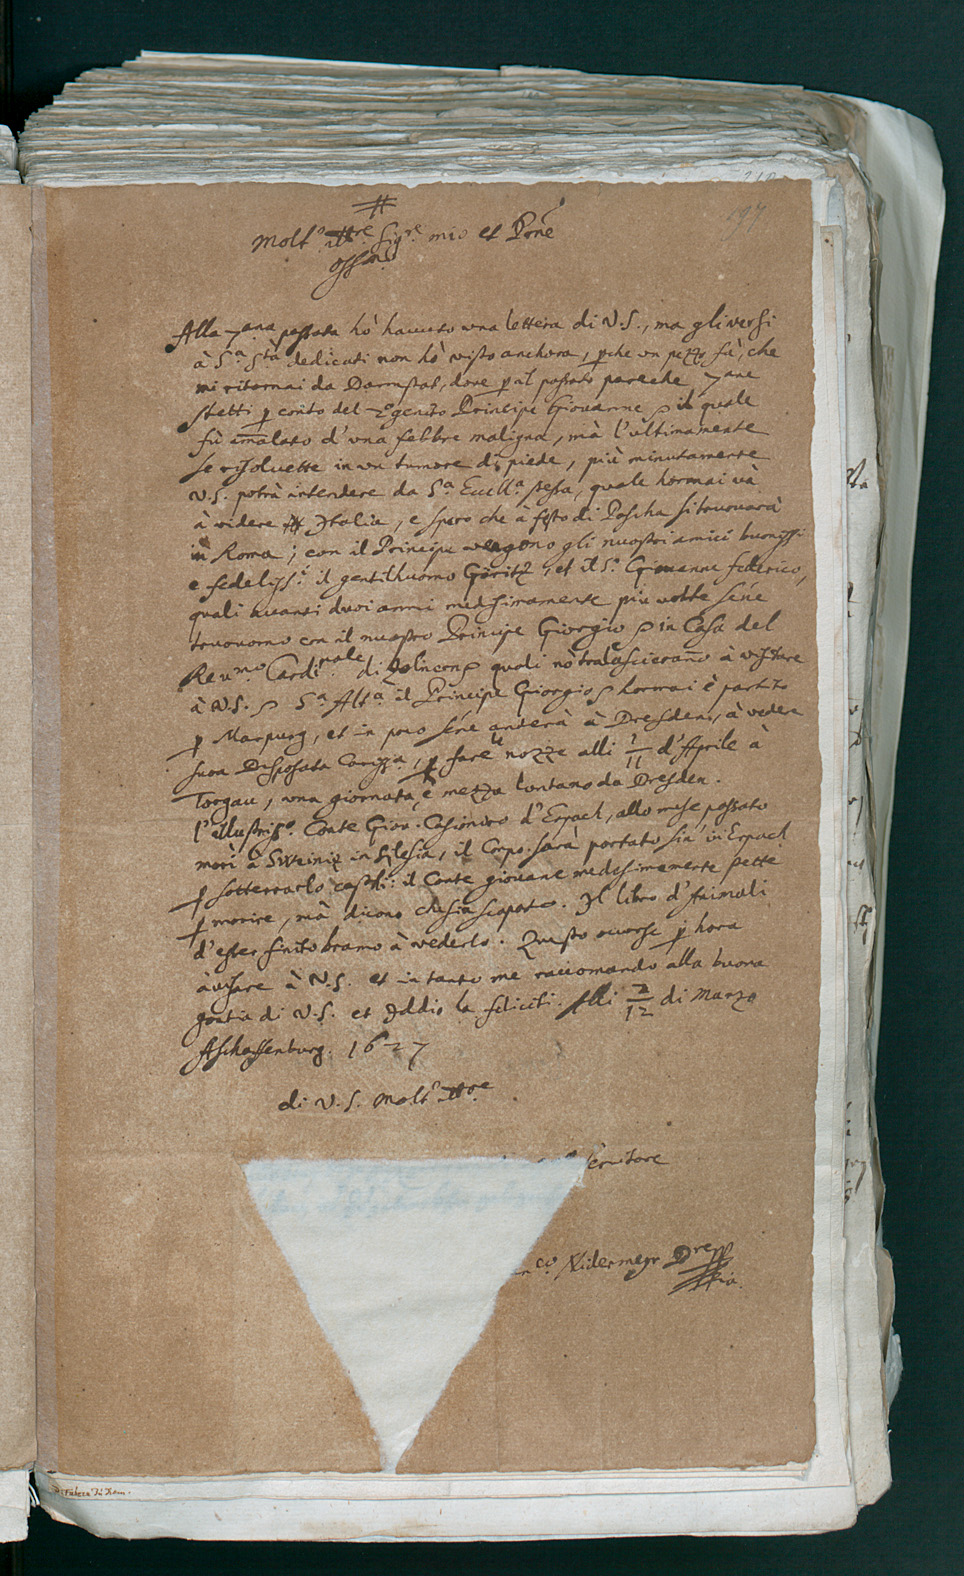 197
Molt.o Ill.re Sig.re mio et P.rone
oss.mo
Alla 7ana passata hò havuto una lettera di V.S., ma gli versi
à S.a S.tà dedicati non hò visto anchora, p̱che un pezzo fà, che
mi ritornai da Darmstat, dove p̱ il passato pareche 7ane
stetti p̱ conto del Principe Giovanne il quale
fù am̄alato d'una febbre maligna, mà l'ultimamente
se risoluette in un tumore di piede, più minutamente
V.S. potrà intendere da S.a Ecell.a stessa, quale hormai và
à videre Italia, e spero che à festo di Pascha si trouarà
in Roma; con il Principe vengono gli nuostri amici buonissi
e fedeliss.i il gentilhuomo Göritz, et il S.r Giouanne Federico,
quali avanti duoi anni medesimamente più volte sene
trouorno con il nuostro Principe Giorgio in Casa del
Reu.mo Cardinale di Zolncon quali nō tralascierano à visitare
à V.S. S.a Alt.a il Principe Giorgio hormai è partito
p̱ Marpurg, et in poco sene anderà à Dresden, à vedere
sua Disposata Cariss.a, p̱ fare le nozze alli 1/11 d'Aprile à
Torgau, una giornata e mezza luntano da Dresden.
l'Illustriss.o Conte Giov. Casimiro d'Erpach, allo mese passato
morì à Sweiniz in Silesia, il Corpo sarà portato sia in Erpach
p̱ sotterrarlo il Conte giovane medesimamente stette
p̱ morire, mà dicono che sia scapato. Il libro d'Animali
d'esser finito bramo à vederlo. Questo ocorse p̱ hora
àvisare à V.S. et in tanto me raccomando alla buona
gratia di V.S. et Iddio la feliciti. Alli 2/12 di Marzo
Aschaffenburg. 1627
di V.S. Molt.o Ill.re
servitore
co Nidermayr D
Difalten in Rom.